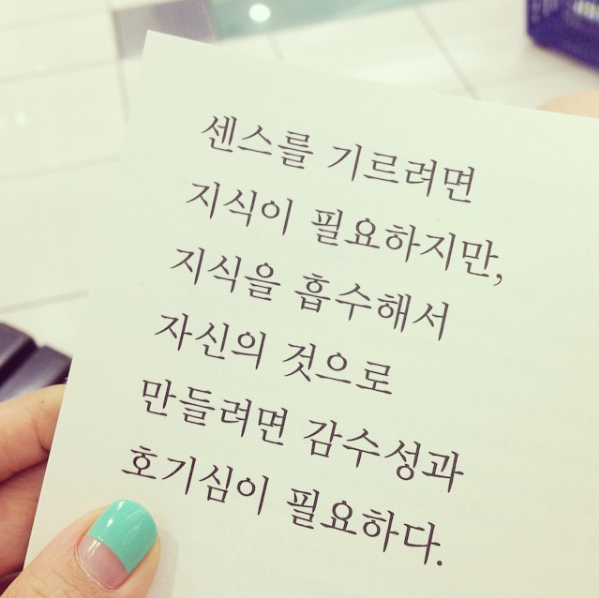 센스를 기르려면
지식이 필요하지만,
지식을 흡수해서
자신의 것으로
만들려면 감수성과
호기심이 필요하다.